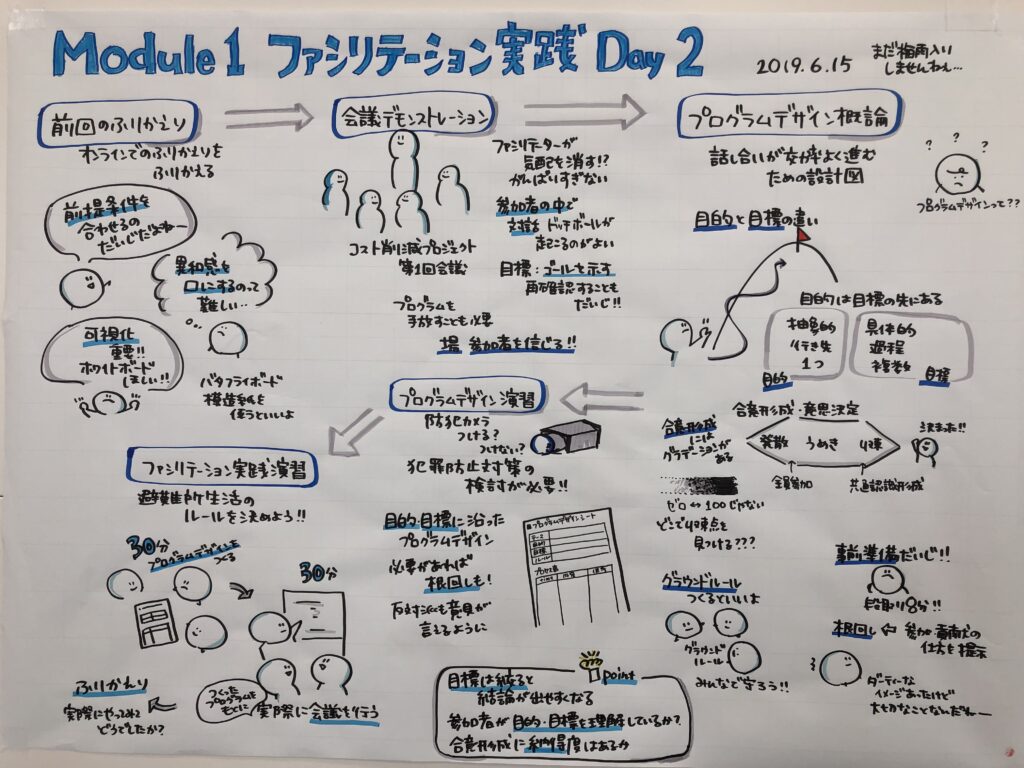 Module 1 ファシリテーション実践 Day 2
2019.6.15
まだ梅雨入り
しませんねぇ…
前回のふりかえり
オンラインでのふりかえりを
ふりかえる
前提条件を
合わせるの
だいじだよねー
異和感を
口にするのって
難しい…
可視化
重要!!
ホワイトボード
ほしい!!
バタフライボード
模造紙を
使うといいよ
会議デモンストレーション
コスト削減プロジェクト
第1回会議
プログラムを
手放すことも必要
ファシリテーターが
気配を消す!?
がんばりすぎない
参加者の中で
ドッチボールが
起こるのがよい
目標:ゴールを示す
再確認することも
だいじ!!
場 参加者を信じる!!
プログラムデザイン概論
話し合いが効率よく進む
ための設計図
? ? ?
プログラムデザインって??
目的と目標の違い
目的は目標の先にある
抽象的
行き先
1つ
目的
具体的
過程
複数
目標
合意形成・意思決定
発散 うめき 収束
決まった!!
全員参加
共通認識形成
合意形成
には
グラデーションが
ある
ゼロ⇔100じゃない
どこで収束点を
見つける???
グラウンドルール
つくるといいよ
グラウンド
ルール
みんなで守ろう!!
事前準備だいじ!!
段取り8分!!
根回し ⇐ 参加・貢献の
仕方を提示
ダーティーな
イメージあったけど
大切なことなんだねー
プログラムデザイン演習
防犯カメラ
つける?
つけない?
犯罪防止対策の
検討が必要!!
目的・目標に沿った
プログラムデザイン
必要があれば
根回しも!
反対派も意見が
言えるように
■プログラムデザインシート
テーマ
目的
目標
ルール
プロセス
ファシリテーション実践演習
避難所生活の
ルールを決めよう!!
30分
プログラムデザインを
つくる
30分
つくった
プログラムを
もとに
実際に会議を行う
ふりかえり
実際にやってみて
どうでしたか?
point
目標は絞ると
結論が出せやすくなる
参加者が目的・目標を理解しているか?
合意形成に納得度はあるか